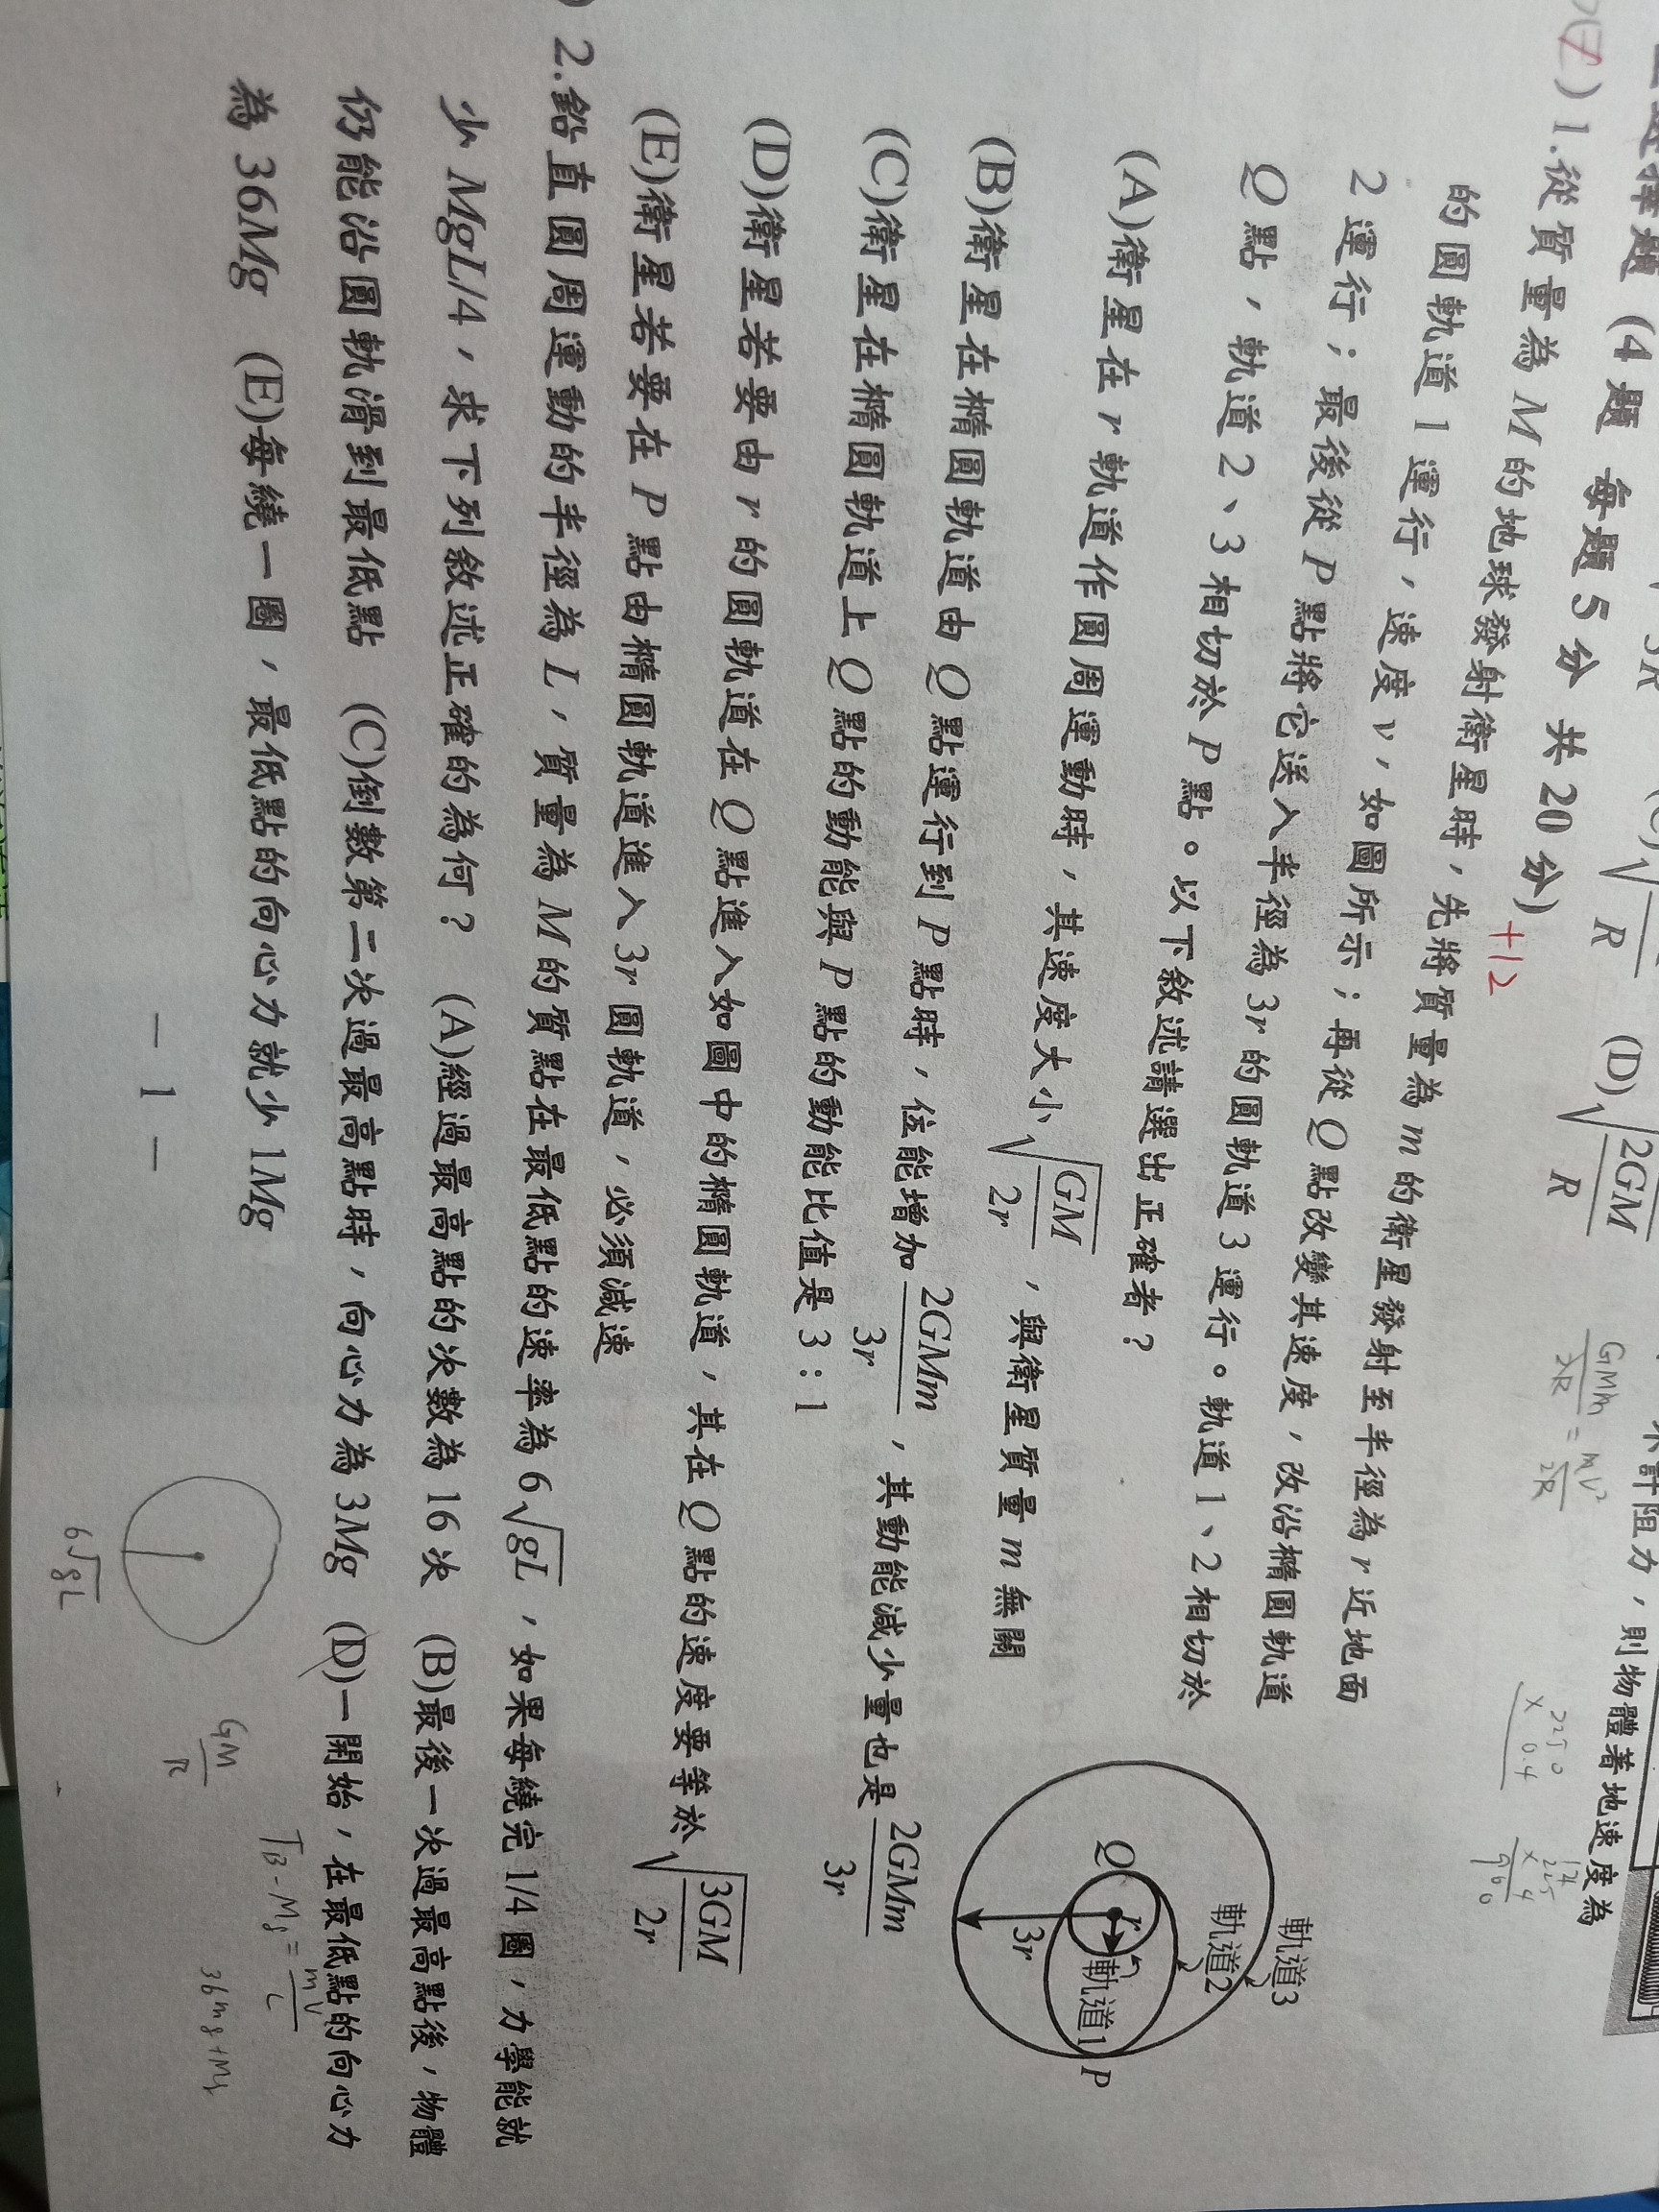 選擇題（4 題 每題 5 分 共 20 分）+12
(C)√ R (D)√2GM/R
不計阻力，則物體著地速度為
1.從質量為 M 的地球發射衛星時，先將質量為 m 的衛星發射至半徑為 r 近地面
的圓軌道 1 運行，速度 v，如圖所示；再從 Q 點改變其速度，改沿橢圓軌道
2 運行；最後從 P 點將它送入半徑為 3r 的圓軌道 3 運行。軌道 1、2 相切於
Q 點，軌道 2、3 相切於 P 點。以下敘述請選出正確者？
(A)衛星在 r 軌道作圓周運動時，其速度大小√GM/2r，與衛星質量 m 無關
(B)衛星在橢圓軌道由 Q 點運行到 P 點時，位能增加2GMm/3r，其動能減少量也是2GMm/3r
(C)衛星在橢圓軌道上 Q 點的動能與 P 點的動能比值是 3：1
(D)衛星若要由 r 的圓軌道在 Q 點進入如圖中的橢圓軌道，其在 Q 點的速度要等於√3GM/2r
(E)衛星若要在 P 點由橢圓軌道進入 3r 圓軌道，必須減速
軌道3
軌道2
軌道1
Q
r
3r
P
2.鉛直圓周運動的半徑為 L，質量為 M 的質點在最低點的速率為 6√gL，如果每繞完 1/4 圈，力學能就
少 MgL/4，求下列敘述正確的為何？ (A)經過最高點的次數為 16 次 (B)最後一次過最高點後，物體
仍能沿圓軌滑到最低點 (C)倒數第二次過最高點時，向心力為 3Mg (D)一開始，在最低點的向心力
為 36Mg (E)每繞一圈，最低點的向心力就少 1Mg
6√gL
GM/R
TB-Mg=mv/L
36mg+Mg
－ 1 －